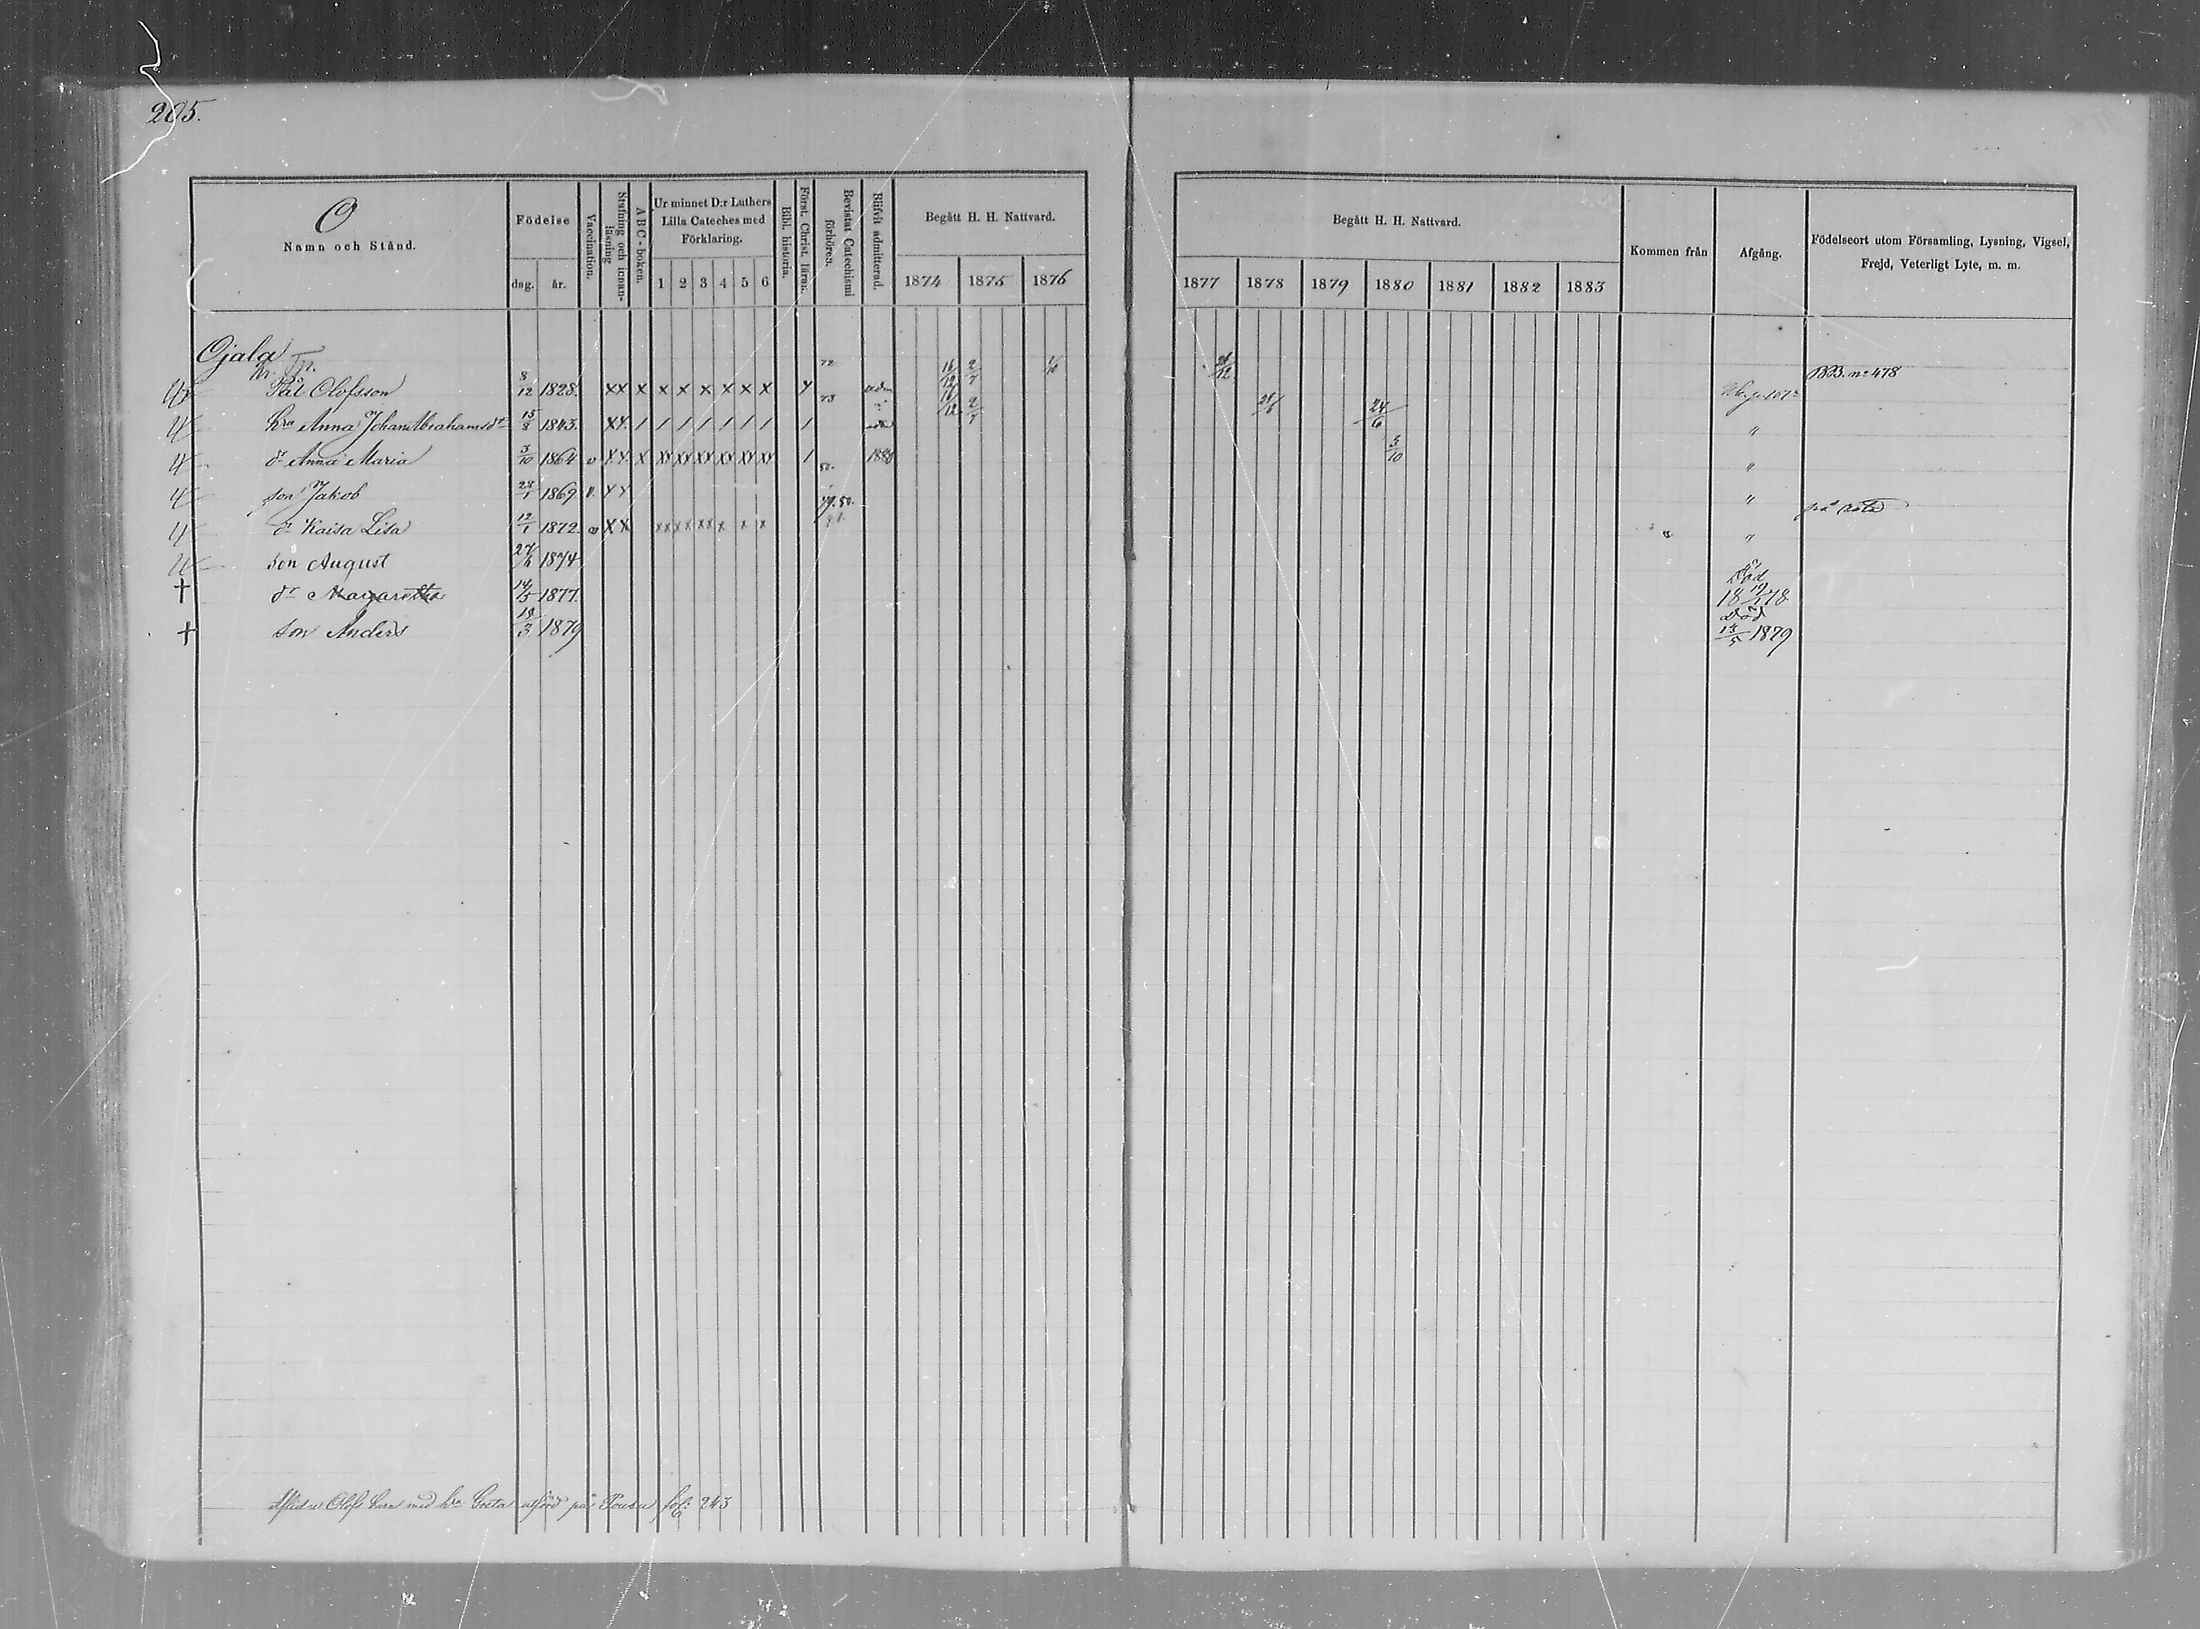 205.
O
Namn och Stånd.
Födelse
dag. år.
Vaccination.
Stafning och innanläsning
ABC-boken.
Ur minnet D:r Luthers Lilla Cateches med Förklaring.
1 2 3 4 5 6
Bibl. historia.
Först. Christ. läran.
Bevistat Catechismi förhören.
Blifvit admitterad.
Begått H. H. Nattvard.
1874 1875 1876
Begått H. H. Nattvard.
1877 1878 1879 1880 1881 1882 1883
Kommen från
Afgång.
Födelseort utom Församling, Lysning, Vigsel, Frejd, Veterligt Lyte, m. m.
Ojala
72 16/12 2/7 1/10 BB. no 478
Pål Olofsson 8/12 1828. XX X X X X X X X
73 16/12 2/7
hru Anna Johan Abrahamsdr 15/8 1843. XX / / / / / / / / 24/6 "
dr Anna Maria 3/10 1864 v XX X XX XX XX XX XX XX / 1880 3/10 "
son Jakob 24/1 1869 v. XX "
79. 80.
dr Kaisa Lisa 12/1 1872. v XX xx xx xx x x x "
son August 1874
Död
† dr Margaretha 14/5 1877. 18 78
Död
† son Anders 18/3 1879 13/5 1879
Olofs barn med hru Greta utförd på fol: 243